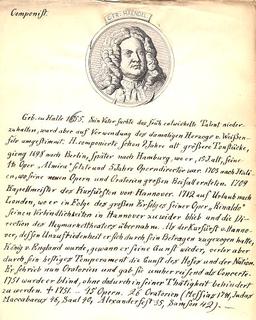 Componist.
G. FR. HAENDEL
Geb. zu Halle 1685. Sein Vater suchte das früh entwickelte Talent nieder-
zuhalten, ward aber auf Verwendung des damaligen Herzogs v. Weißen-
fels umgestimmt. H. componierte schon 9 Jahre alt größere Tonstücke,
gieng 1698 nach Berlin, später nach Hamburg, wo er, 15 J. alt, seine
Oper „Almira" u.
1703 nach Ita-
lien, wo seine neuen Opern und Oratorien großen Beifall ernteten. 1709
Kapellmeister des Kurfürsten von Hannover. 1712 auf Urlaub nach
London, wo er in Folge des großen Erfolges seiner Oper „Rinaldo"
seinen Verbindlichkeiten in Hannover zuwider blieb und die Di-
rection des Heymarkettheaters übernahm. Als der Kurfürst v. Hanno-
ver, dessen Unzufriedenheit er sich durch sein Betragen zugezogen hatte,
König v. England wurde, gewann er seine Gunst wieder, verlor aber
durch sein heftiges Temperament die Gunst des Hofes und der Nation.
Er schrieb nun Oratorien und gab sie umherreisend als Concerte.
1751 ward er blind, ohne dadurch in seiner Thätigkeit behindert
zu werden. † 1751. – 45 Opern. 26 Oratorien (Messias 1741, Judas
Maccabaeus 46, Saul 40, Alexanderfest 35, Samson 42).